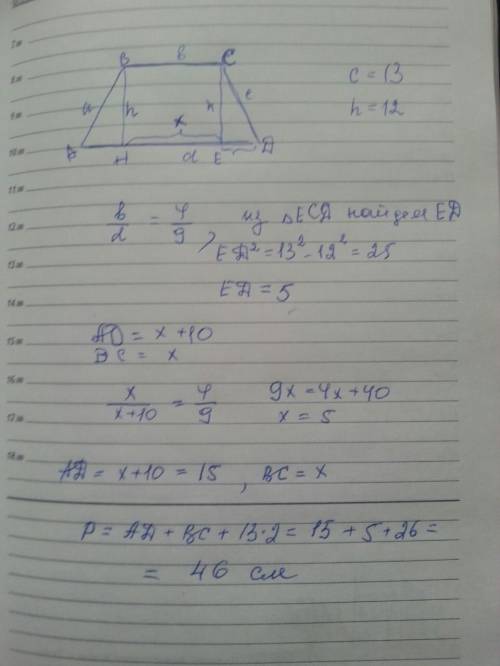 B b C
c = 13
a h h c
h = 12
x
A H d E D
b/d = 4/9 , из △ECD найдем ED
ED² = 13² - 12² = 25
ED = 5
AD = x + 10
BC = x
x/(x+10) = 4/9 9x = 4x + 40
x = 5
AD = x + 10 = 15 , BC = x
P = AD + BC + 13·2 = 15 + 5 + 26 =
= 46 см